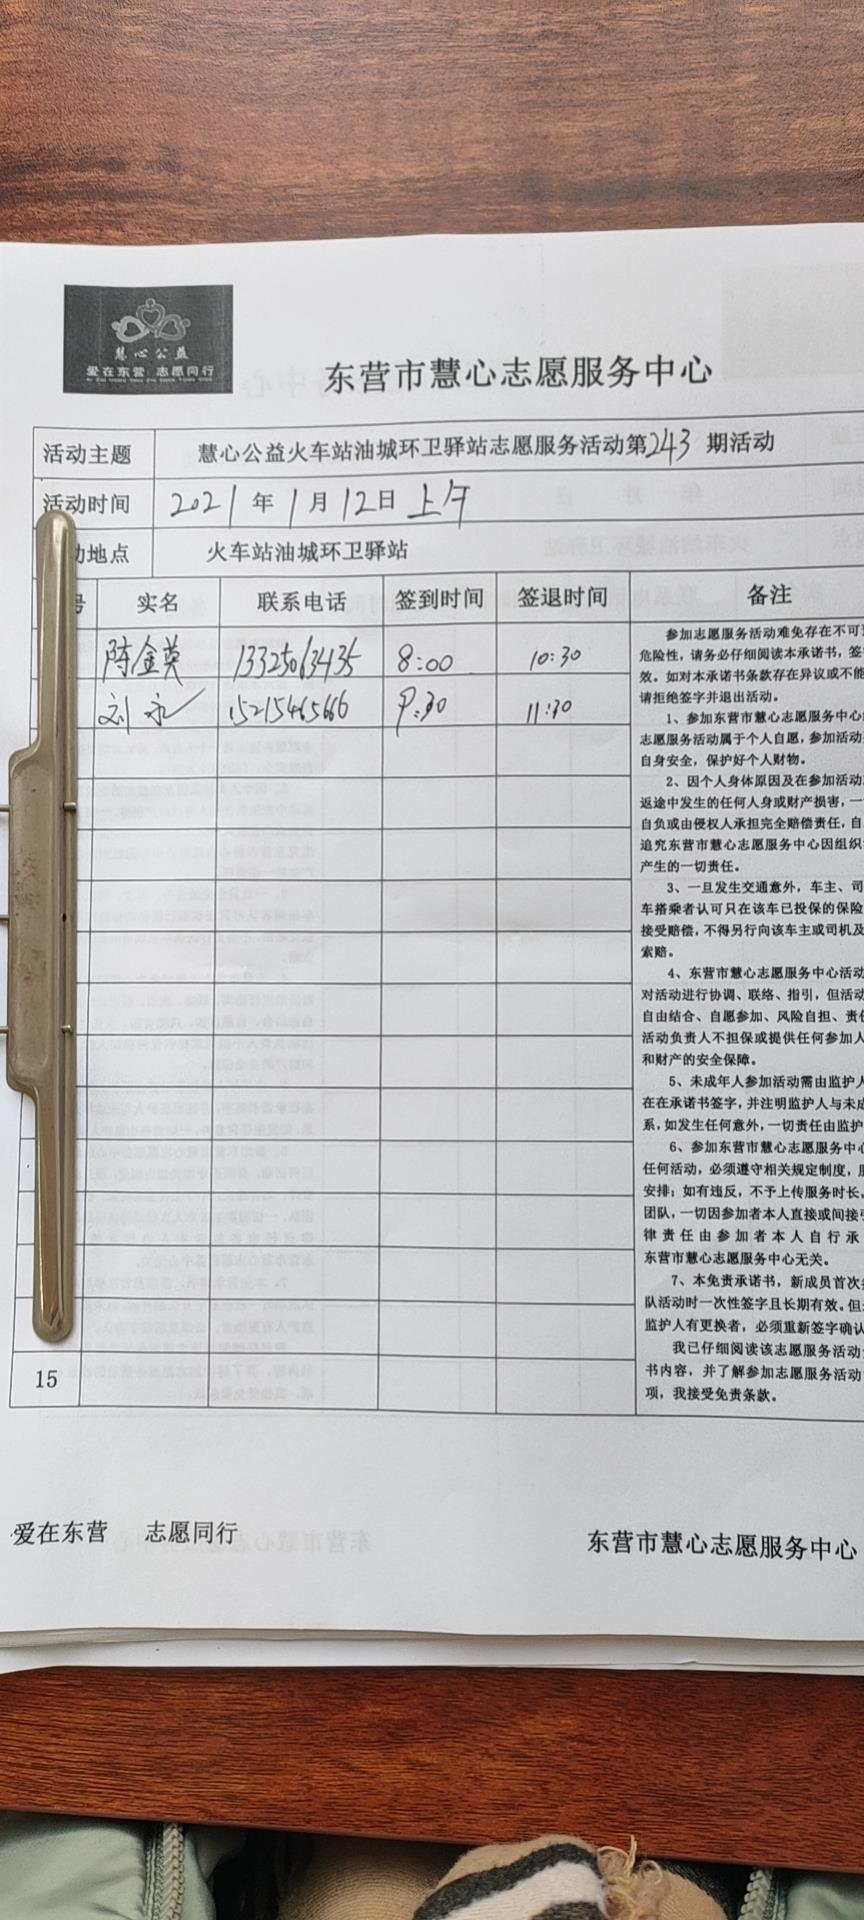 慧心公益
爱在东营 志愿同行
东营市慧心志愿服务中心
活动主题 慧心公益火车站油城环卫驿站志愿服务活动第243期活动
活动时间 2021年1月12日上午
动地点 火车站油城环卫驿站
号 实名 联系电话 签到时间 签退时间 备注
陈金英 13325063435 8:00 10:30
刘永 15215465666 9:30 11:30
参加志愿服务活动难免存在不可
危险性，请务必仔细阅读本承诺书，签
效。如对本承诺书条款存在异议或不能
请拒绝签字并退出活动。
1、参加东营市慧心志愿服务中心
志愿服务活动属于个人自愿，参加活动
自身安全，保护好个人财物。
2、因个人身体原因及在参加活动
返途中发生的任何人身或财产损害，一
自负或由侵权人承担完全赔偿责任，自
追究东营市慧心志愿服务中心因组织
产生的一切责任。
3、一旦发生交通意外，车主、司
车搭乘者认可只在该车已投保的保险
接受赔偿，不得另行向该车主或司机及
索赔。
4、东营市慧心志愿服务中心活动
对活动进行协调、联络、指引，但活动
自由结合、自愿参加、风险自担、责任
活动负责人不担保或提供任何参加人
和财产的安全保障。
5、未成年人参加活动需由监护人
在在承诺书签字，并注明监护人与未成
系，如发生任何意外，一切责任由监护
6、参加东营市慧心志愿服务中心
任何活动，必须遵守相关规定制度，服
安排；如有违反，不予上传服务时长，
团队，一切因参加者本人直接或间接引
律责任由参加者本人自行承
东营市慧心志愿服务中心无关。
7、本免责承诺书，新成员首次参
队活动时一次性签字且长期有效。但
监护人有更换者，必须重新签字确认
我已仔细阅读该志愿服务活动
书内容，并了解参加志愿服务活动
项，我接受免责条款。
15
爱在东营 志愿同行
东营市慧心志愿服务中心